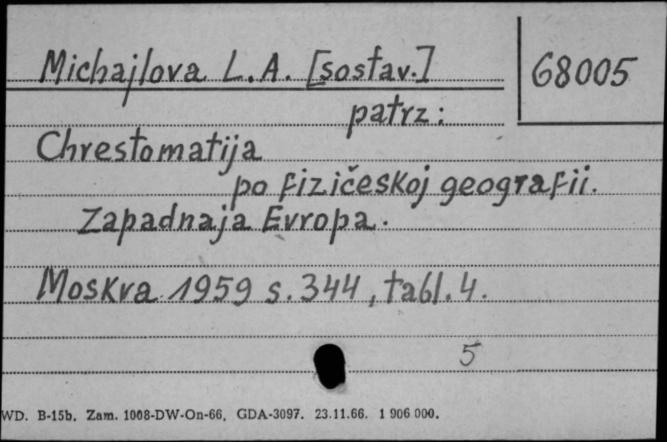 Michajlova L.A. [sostav.]
68005
patrz:
Chrestomatija
po fizičeskoj geografii.
Zapadnaja Evropa.
Moskva 1959 s. 344, tabl. 4.
5
WD. B-15b. Zam. 1008-DW-On-66. GDA-3097. 23.11.66. 1 906 000.